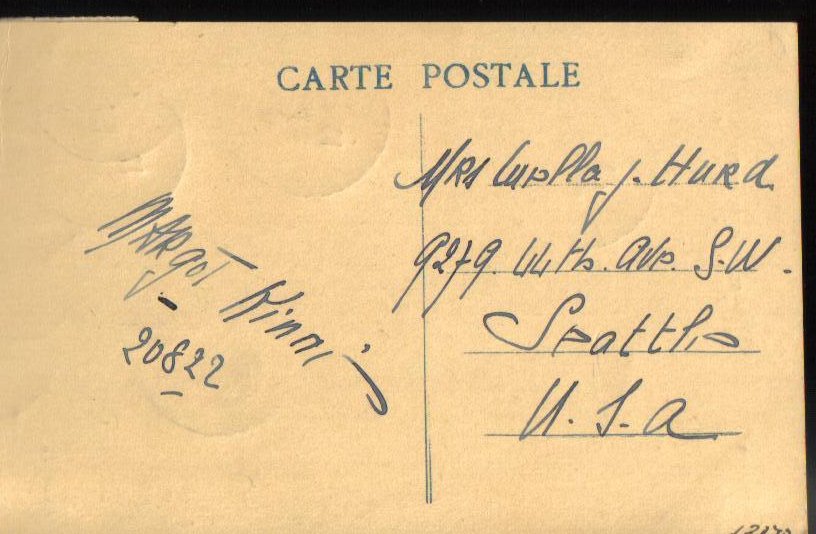 CARTE POSTALE
Mrs Luella J. Hurd
9279. 44th. Ave. S.W.
Seattle
U.S.A
MARgoT
20822